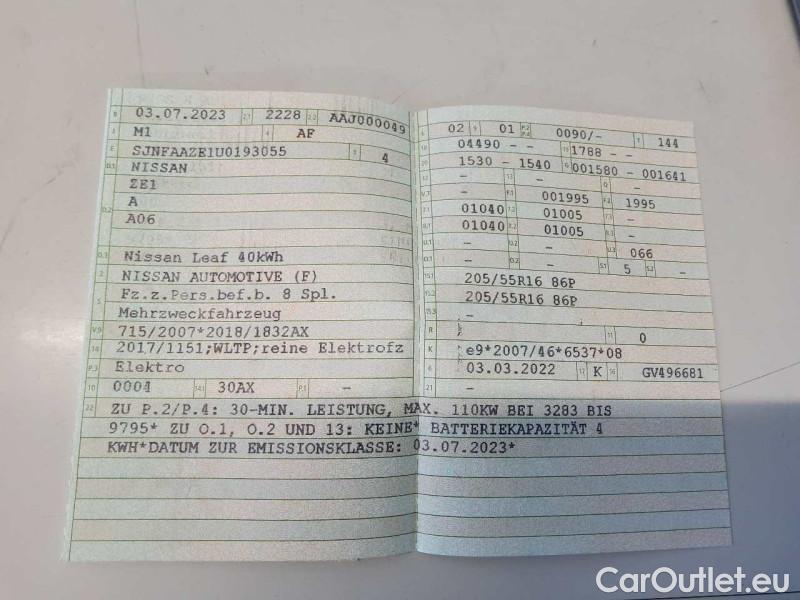 B 03.07.2023 2.1 2228 2.2 AAJ000049
J M1 4 AF
E SJNFAAZE1U0193055 3 4
D.1 NISSAN
ZE1
D.2 A
A06
D.3 Nissan Leaf 40kWh
2 NISSAN AUTOMOTIVE (F)
5 Fz.z.Pers.bef.b. 8 Spl.
Mehrzweckfahrzeug
V.9 715/2007*2018/1832AX
14 2017/1151;WLTP;reine Elektrofz
P.3 Elektro
10 0004 14.1 30AX P.1 –
L 02 9 01 P.2 P.4 0090/- T 144
18 04490 – – 19 1788 – –
20 1530 – 1540 G 001580 – 001641
12 – 13 – Q –
V.7 – F.1 001995 F.2 1995
7.1 01040 7.2 01005 7.3 –
8.1 01040 8.2 01005 8.3 –
U.1 – U.2 – U.3 066
O.1 – O.2 – S.1 5 S.2 –
15.1 205/55R16 86P
15.2 205/55R16 86P
15.3 –
R 11 0
K e9*2007/46*6537*08
6 03.03.2022 17 K 16 GV496681
21 –
22 ZU P.2/P.4: 30-MIN. LEISTUNG, MAX. 110KW BEI 3283 BIS
9795* ZU O.1, O.2 UND 13: KEINE* BATTERIEKAPAZITÄT 4
KWH*DATUM ZUR EMISSIONSKLASSE: 03.07.2023*
CarOutlet.eu